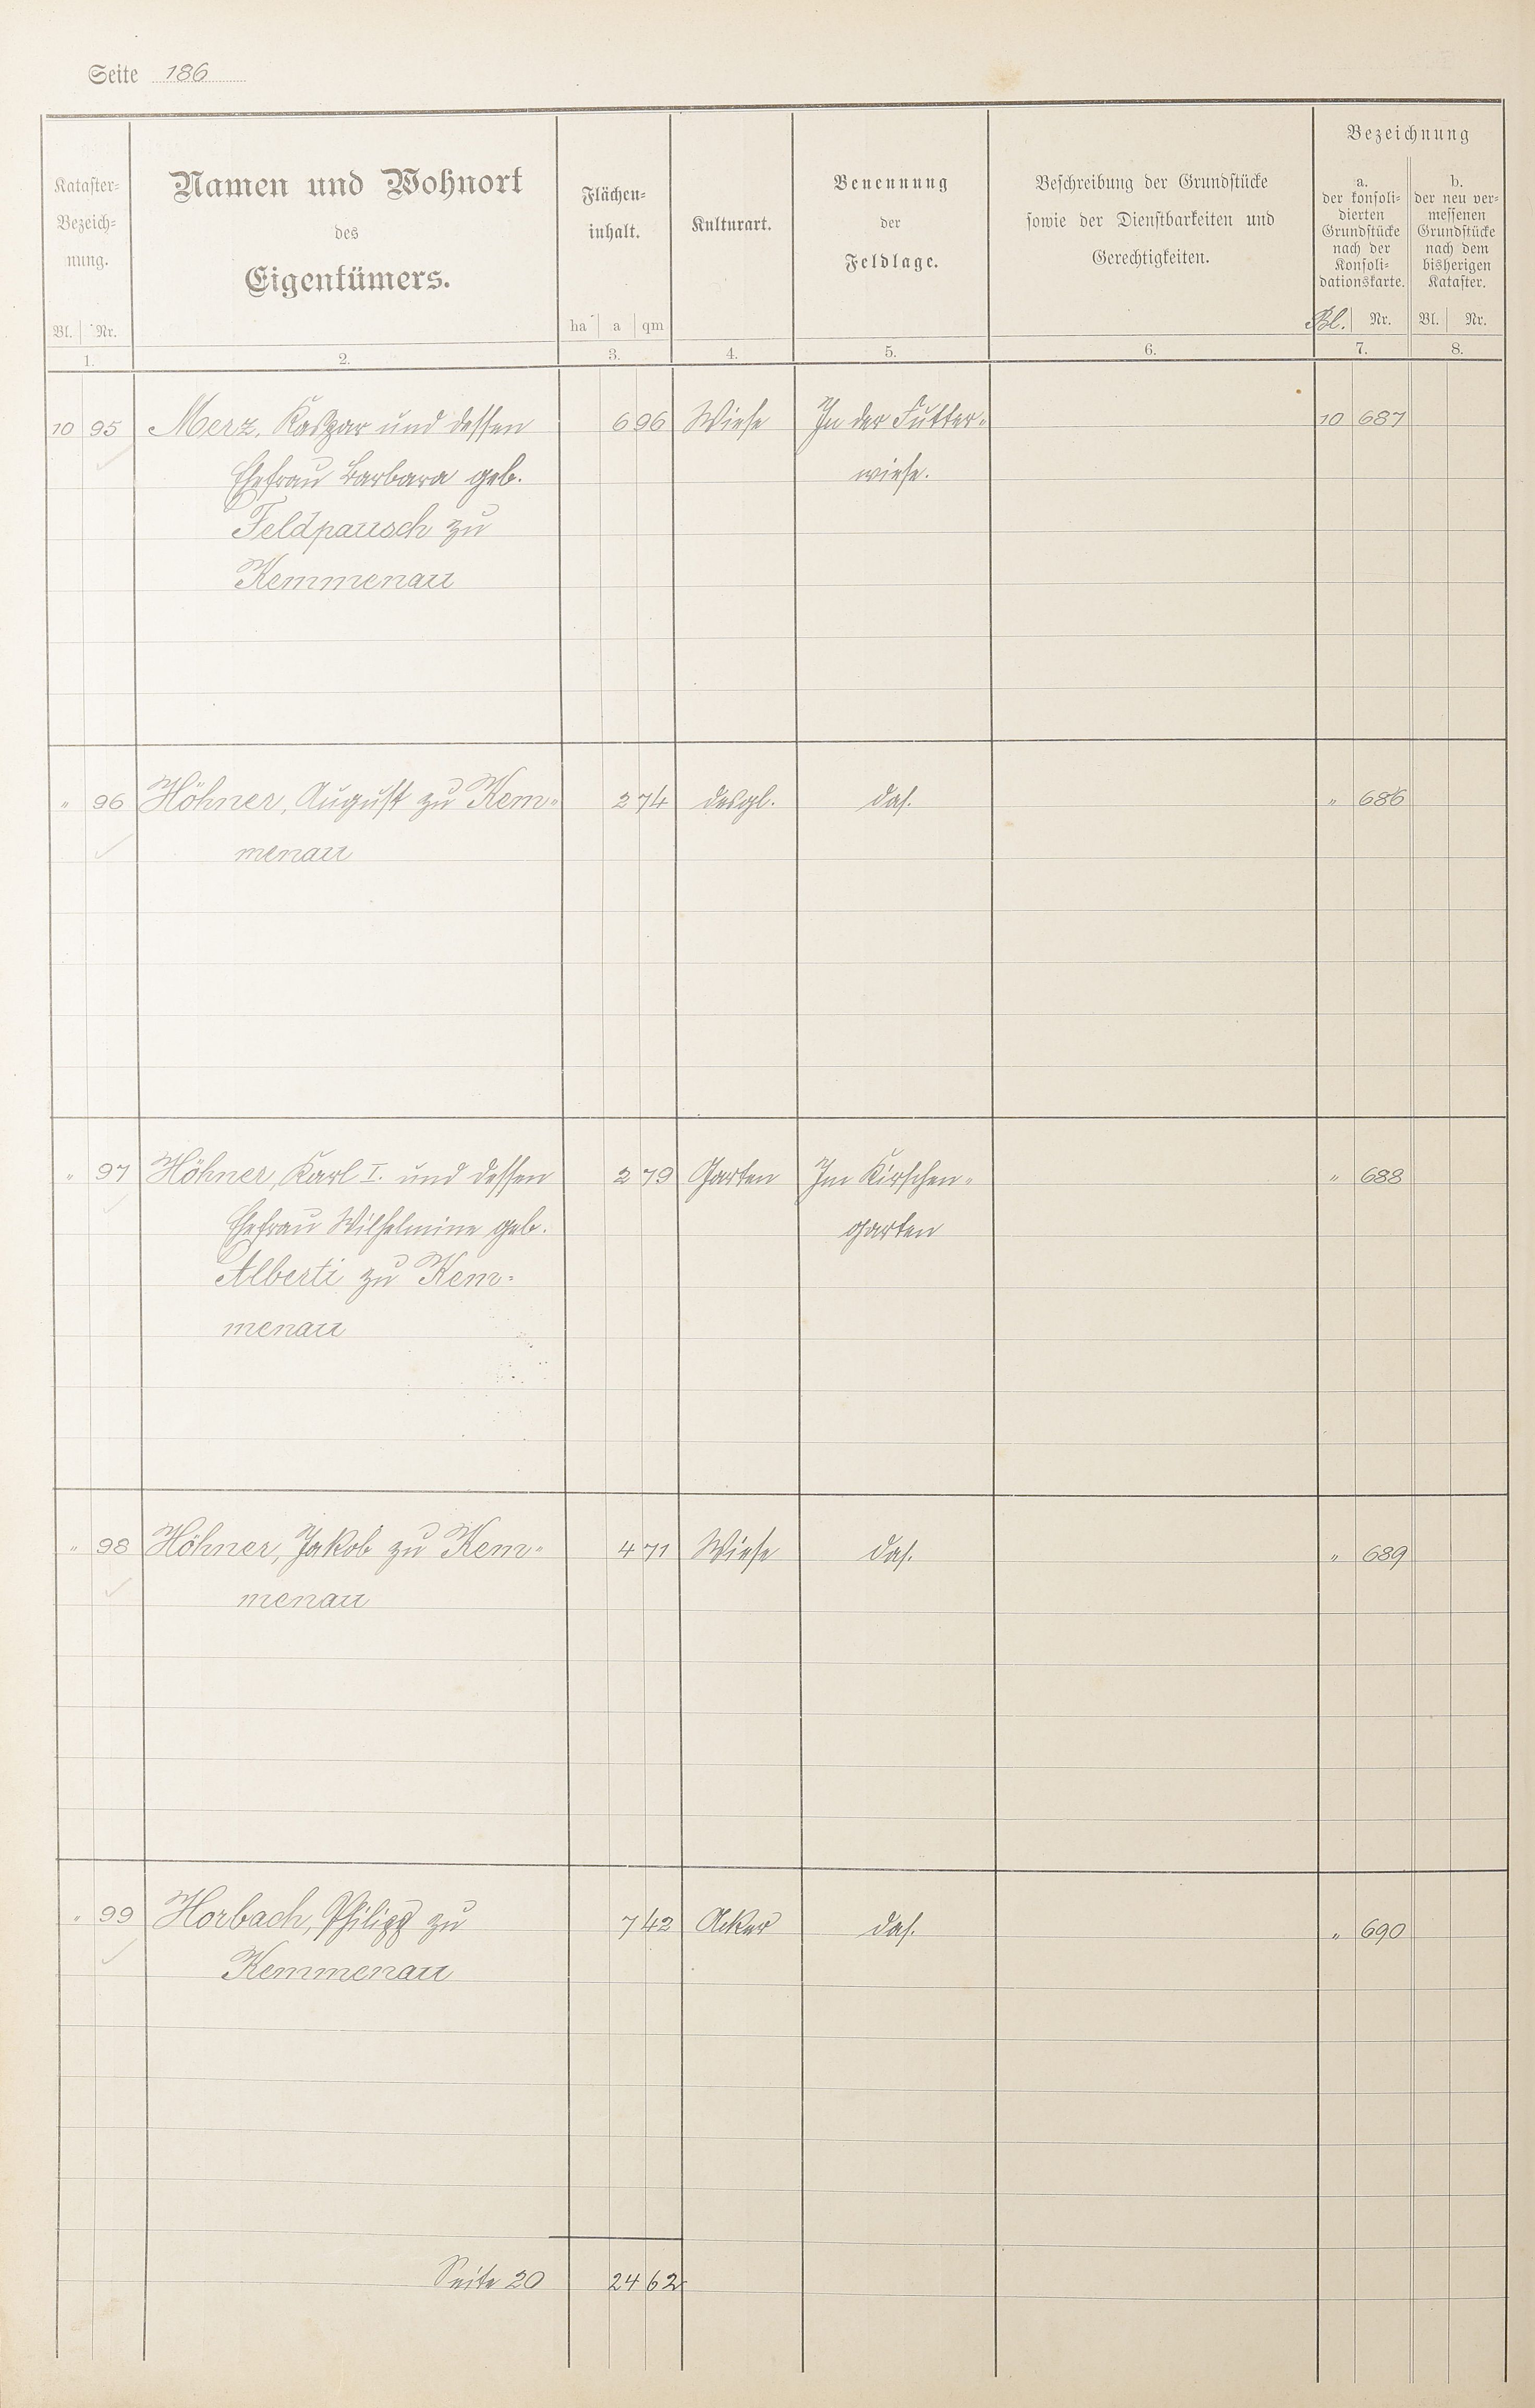 Seite 186
Kataster-
Bezeich-
nung.
Bl. Nr.
1.
Namen und Wohnort
des
Eigentümers.
2.
Flächen-
inhalt.
ha a qm
3.
Kulturart.
4.
Benennung
der
Feldlage.
5.
Beschreibung der Grundstücke
sowie der Dienstbarkeiten und
Gerechtigkeiten.
6.
Bezeichnung
a.
der konsoli-
dierten
Grundstücke
nach der
Konsoli-
dationskarte.
Bl. Nr.
7.
b.
der neu ver-
messenen
Grundstücke
nach dem
bisherigen
Kataster.
Bl. Nr.
8.
10 95 Merz, Kaspar und dessen 6 96 Wiese In der Futter- 10 687
Ehefrau Barbara geb. wiese.
Feldpausch zu
Kemmenau
" 96 Höhner, August zu Kem- 2 74 desgl. das. " 686
menau
" 97 Höhner, Karl I. und dessen 2 79 Garten Im Kirschen- " 688
Ehefrau Wilhelmine geb. garten
Alberti zu Kem-
menau
" 98 Höhner, Jakob zu Kem- 4 71 Wiese das. " 689
menau
" 99 Horbach, Philipp zu 7 42 Acker das. " 690
Kemmenau
Seite 20 24 62